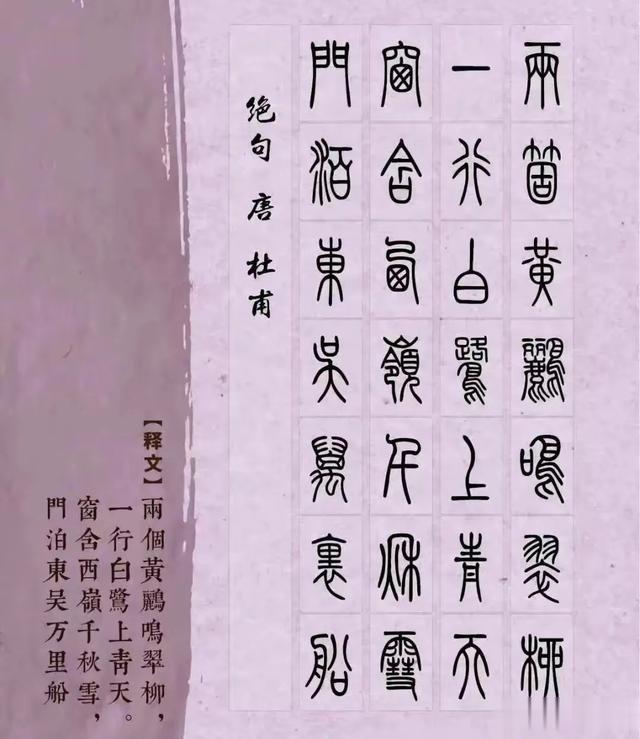 兩箇黃鸝鳴翠柳
一行白鷺上青天
窗含西嶺千秋雪
門泊東吳萬裏船
绝句 唐 杜甫
【释文】兩個黃鸝鳴翠柳，
一行白鷺上靑天。
窗含西嶺千秋雪，
門泊東吴万里船